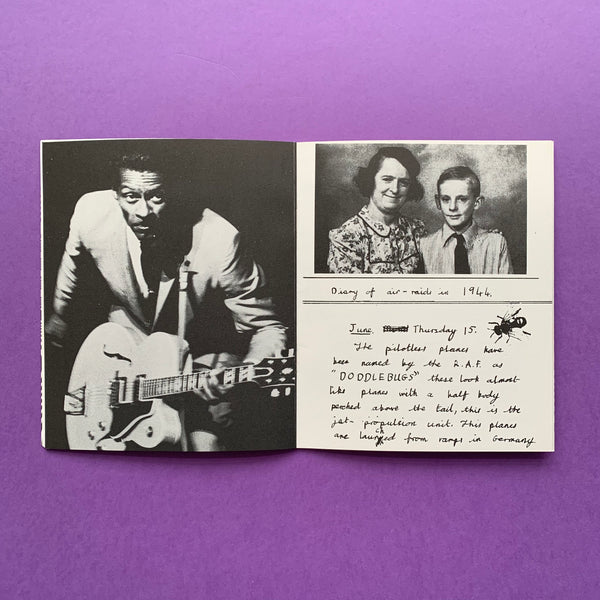 Diary of air-raids in 1944.
June. Thursday 15.
The pilotless planes have
been named by the R.A.F. as
"DODDLEBUGS" these look almost
like planes with a half body
perched above the tail, this is the
jet-propulsion unit. This planes
are launched from ramps in Germany